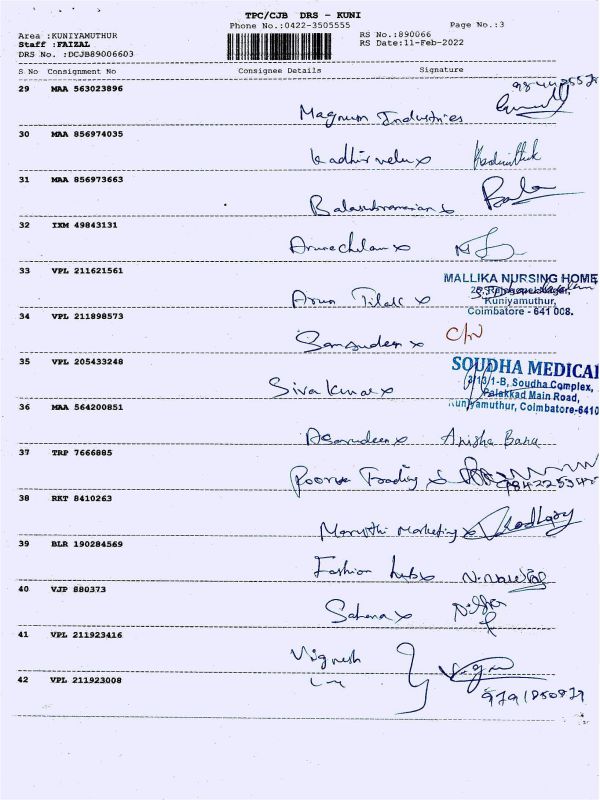 TPC/CJB DRS - KUNI
Phone No.:0422-3505555 Page No.:3
Area :KUNIYAMUTHUR RS No.:890066
Staff :FAIZAL RS Date:11-Feb-2022
DRS No. :DCJB89006603
S No Consignment No Consignee Details Signature
29 MAA 563023896
Magnum Industries
30 MAA 856974035
Kadhirvelu x
31 MAA 856973663
Balasubramanian x Bala
32 IXM 49843131
Arunachalam x
33 VPL 211621561 MALLIKA NURSING HOME
Arun Tilak x Kuniyamuthur,
34 VPL 211898573 Coimbatore - 641 008.
Samsudeen x C/N
35 VPL 205433248 SOUDHA MEDICAL
Sivakumar x 3/13/1-B, Soudha Complex,
Palakkad Main Road,
36 MAA 564200851 Kuniyamuthur, Coimbatore-6410
Asarudeen x Anisha Banu
37 TRP 7666885
Poorva Trading x
38 RKT 8410263
Maruthi Marketing x
39 BLR 190284569
Fashion hub x
40 VJP 880373
Sahana x
41 VPL 211923416
Vignesh
42 VPL 211923008